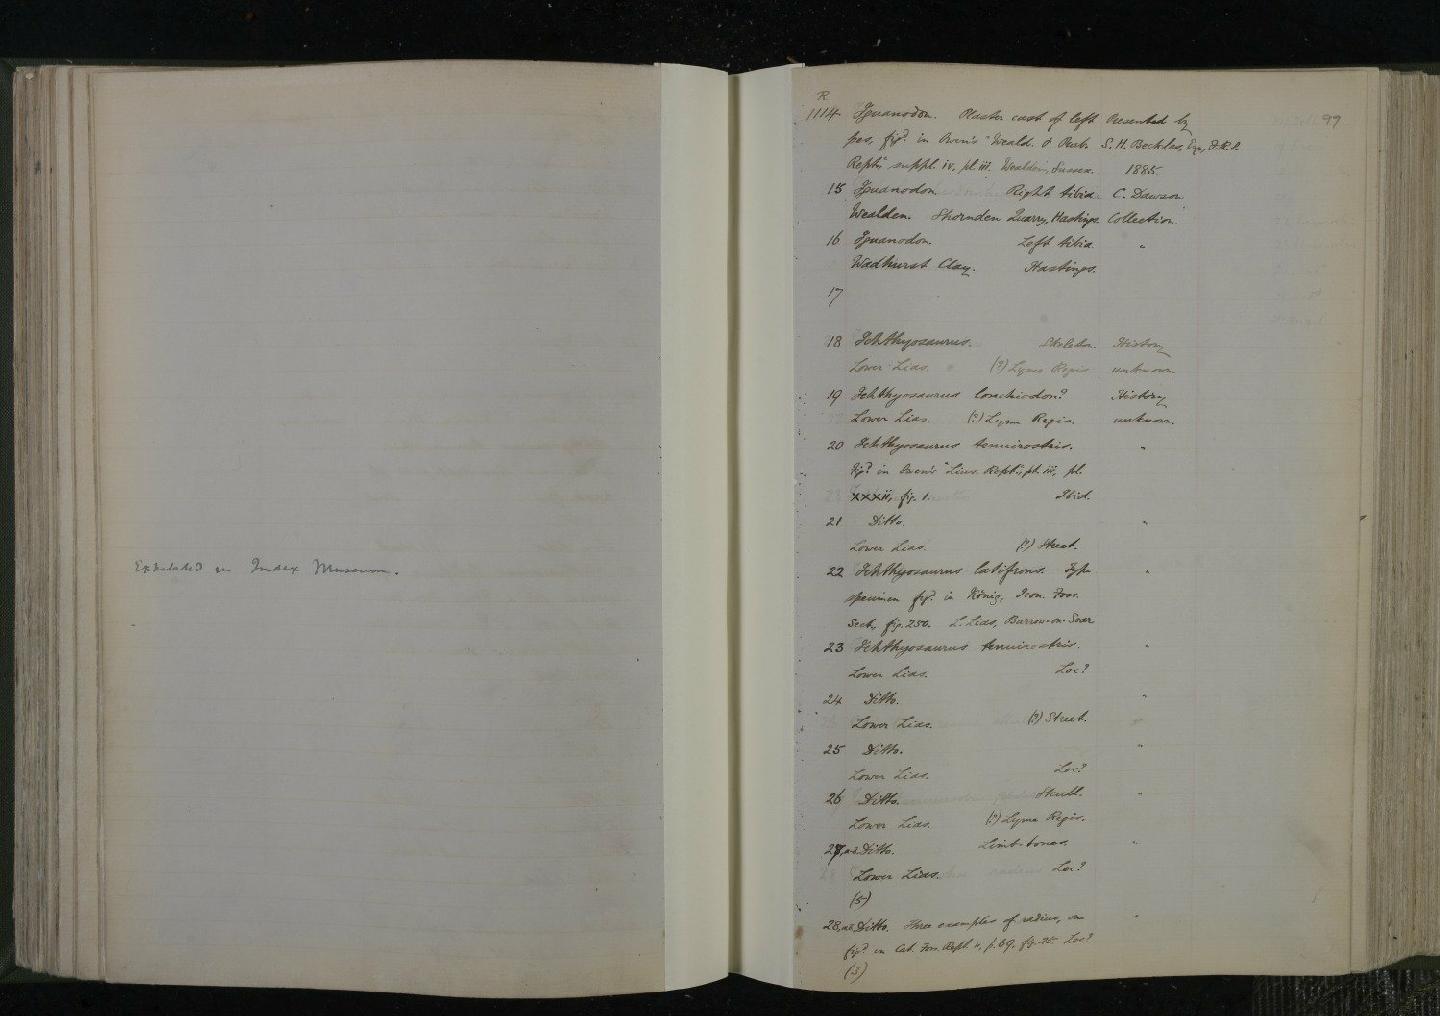 Exhibited in Index Museum.
99
R.
1114 Iguanodon. Plaster cast of left Presented by
pes, figd. in Owen's "Weald. & Purb. S. H. Beckles, Esq., F.R.S.
Rept." suppl. iv, pl. iii. Wealden, Sussex. 1885.
15 Iguanodon. Right tibia. C. Dawson
Wealden. Shornden Quarry, Hastings. Collection
16 Iguanodon. Left tibia. "
Wadhurst Clay. Hastings.
17
18 Ichthyosaurus. Skeleton. History
Lower Lias. (?) Lyme Regis unknown
19 Ichthyosaurus lonchiodon? History
Lower Lias. (?) Lyme Regis. unknown.
20 Ichthyosaurus tenuirostris. "
figd. in Owen's "Lias. Rept.", pt. iii, pl.
xxxii, fig. 1. Ibid.
21 Ditto. "
Lower Lias. (?) Street.
22 Ichthyosaurus latifrons. Type "
specimen figd. in König, Icon. Foss.
Sect., fig. 250. L. Lias, Barrow-on-Soar
23 Ichthyosaurus tenuirostris. "
Lower Lias. Loc?
24 Ditto. "
Lower Lias. (?) Street.
25 Ditto. "
Lower Lias. Loc?
26 Ditto. Skull. "
Lower Lias. (?) Lyme Regis.
27, a-d. Ditto. Limb-bones. "
Lower Lias. Loc?
(5)
28, a-b. Ditto. Three examples of radius, one "
figd. in Cat. Foss. Rept. ii, p. 69, fig. Loc?
(3)